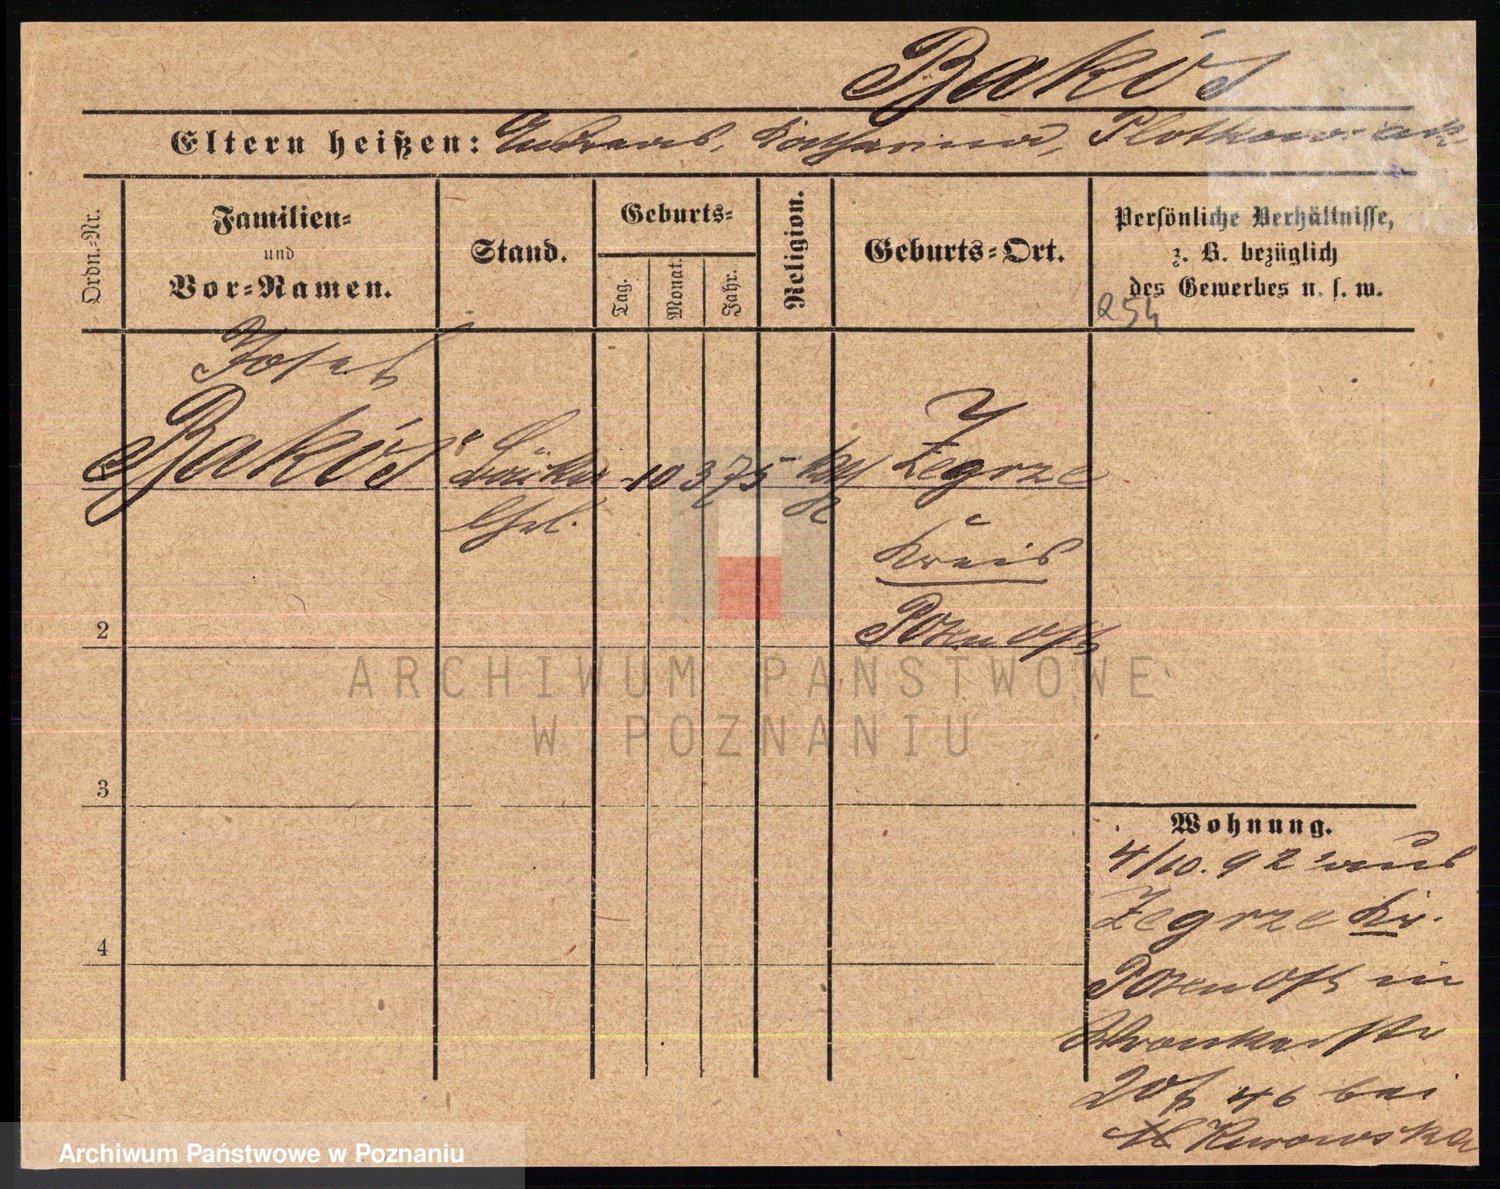 Bakós
Eltern heißen: Andreas, Katharina, Plotkowiak
Ordn.-Nr.
Familien-
und
Vor-Namen.
Stand.
Geburts-
Tag.
Monat.
Jahr.
Religion.
Geburts-Ort.
Persönliche Verhältnisse,
z. B. bezüglich
des Gewerbes u. s. w.
254
Josef
Bakós
10 3 75 kath
Zegrze
Kreis
Posen Ost
2
3
4
Wohnung.
4/10. 92 aus
Zegrze Kr.
Posen Ost in
Wronkerstr
46 bei
Kurowska
ARCHIWUM PAŃSTWOWE
W POZNANIU
Archiwum Państwowe w Poznaniu